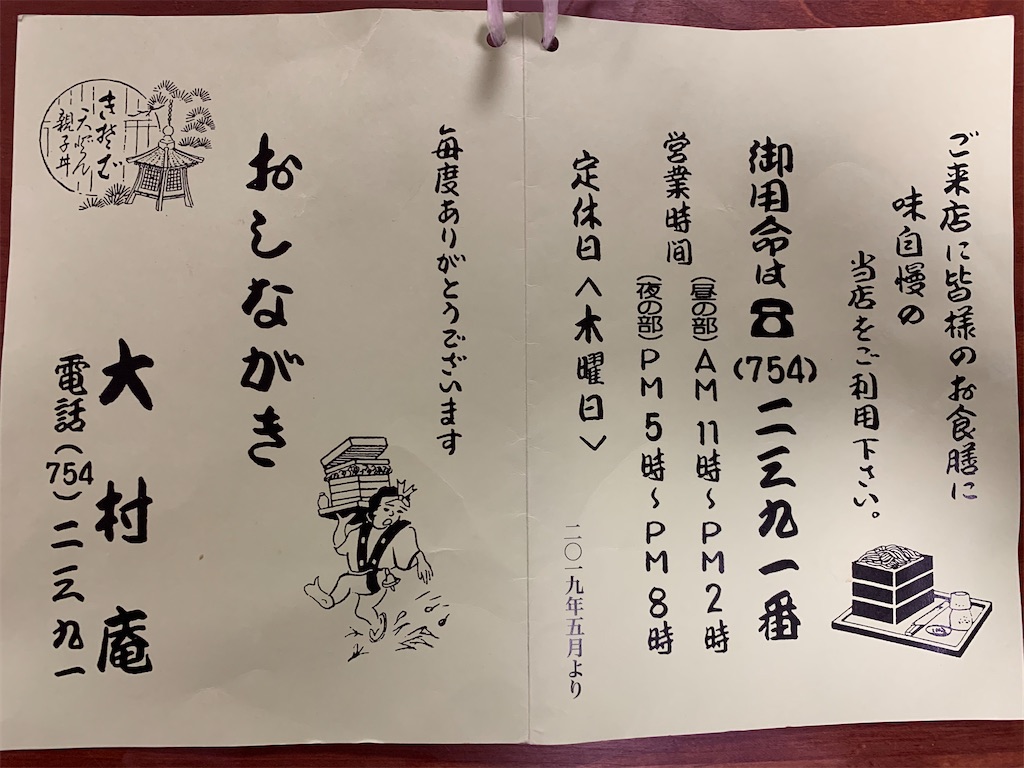 ご来店に皆様のお食膳に
味自慢の
当店をご利用下さい。
御用命は☎(754)二三九一番
営業時間
(昼の部)AM11時～PM2時
(夜の部)PM5時～PM8時
定休日〈木曜日〉
二〇一九年五月より
毎度ありがとうございます
おしながき
大村庵
電話(754)二三九一
きそば
天どん
親子丼